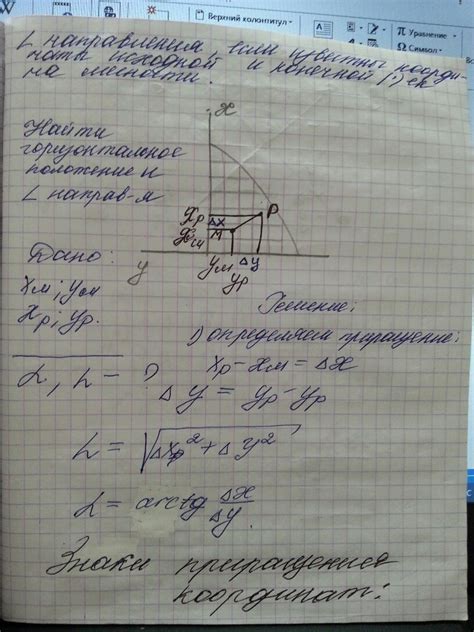 Верхний колонтитул
π Уравнение
Ω Символ
L направления, если известны коорди-
наты исходной и конечной (·) ек
на местности.
Найти
горизонтальное
положение и
L направ-я
x
Xр
Δx
Xм
M
P
y
Yм
Δy
Yр
Дано:
Xм; Yм
Xр; Yр.
Решение:
1) определяем приращение:
Xр - Xм = Δx
L, L - ?
Δy = Yр - Yр
L = √Δxр² + Δy²
L = arctg Δx/Δy.
Знаки приращение
координат: